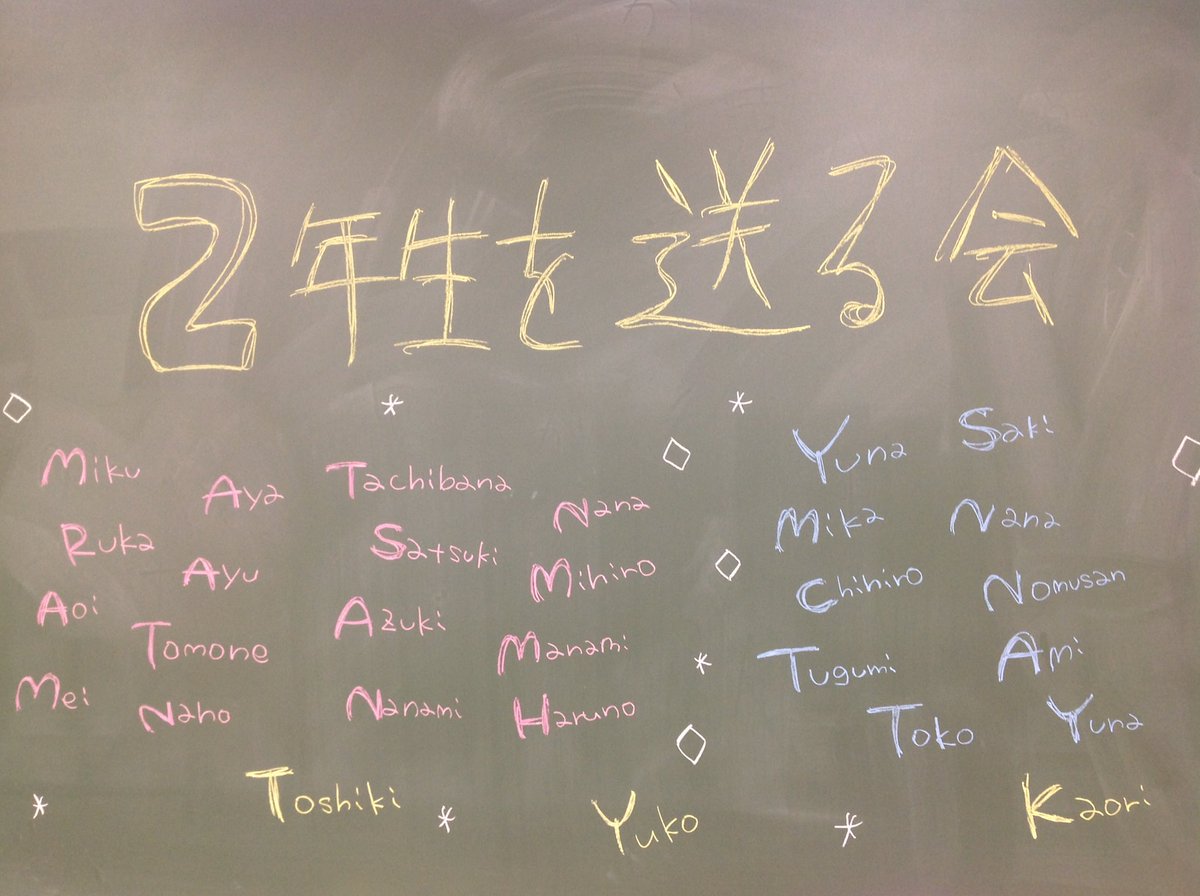 2年生を送る会
Miku Aya Tachibana Nana
Ruka Ayu Satsuki Mihiro
Aoi Tomone Azuki Manami
Mei Naho Nanami Haruno
Yuna Saki
Mika Nana
Chihiro Nomusan
Tugumi Ami
Toko Yuna
Toshiki Yuko Kaori